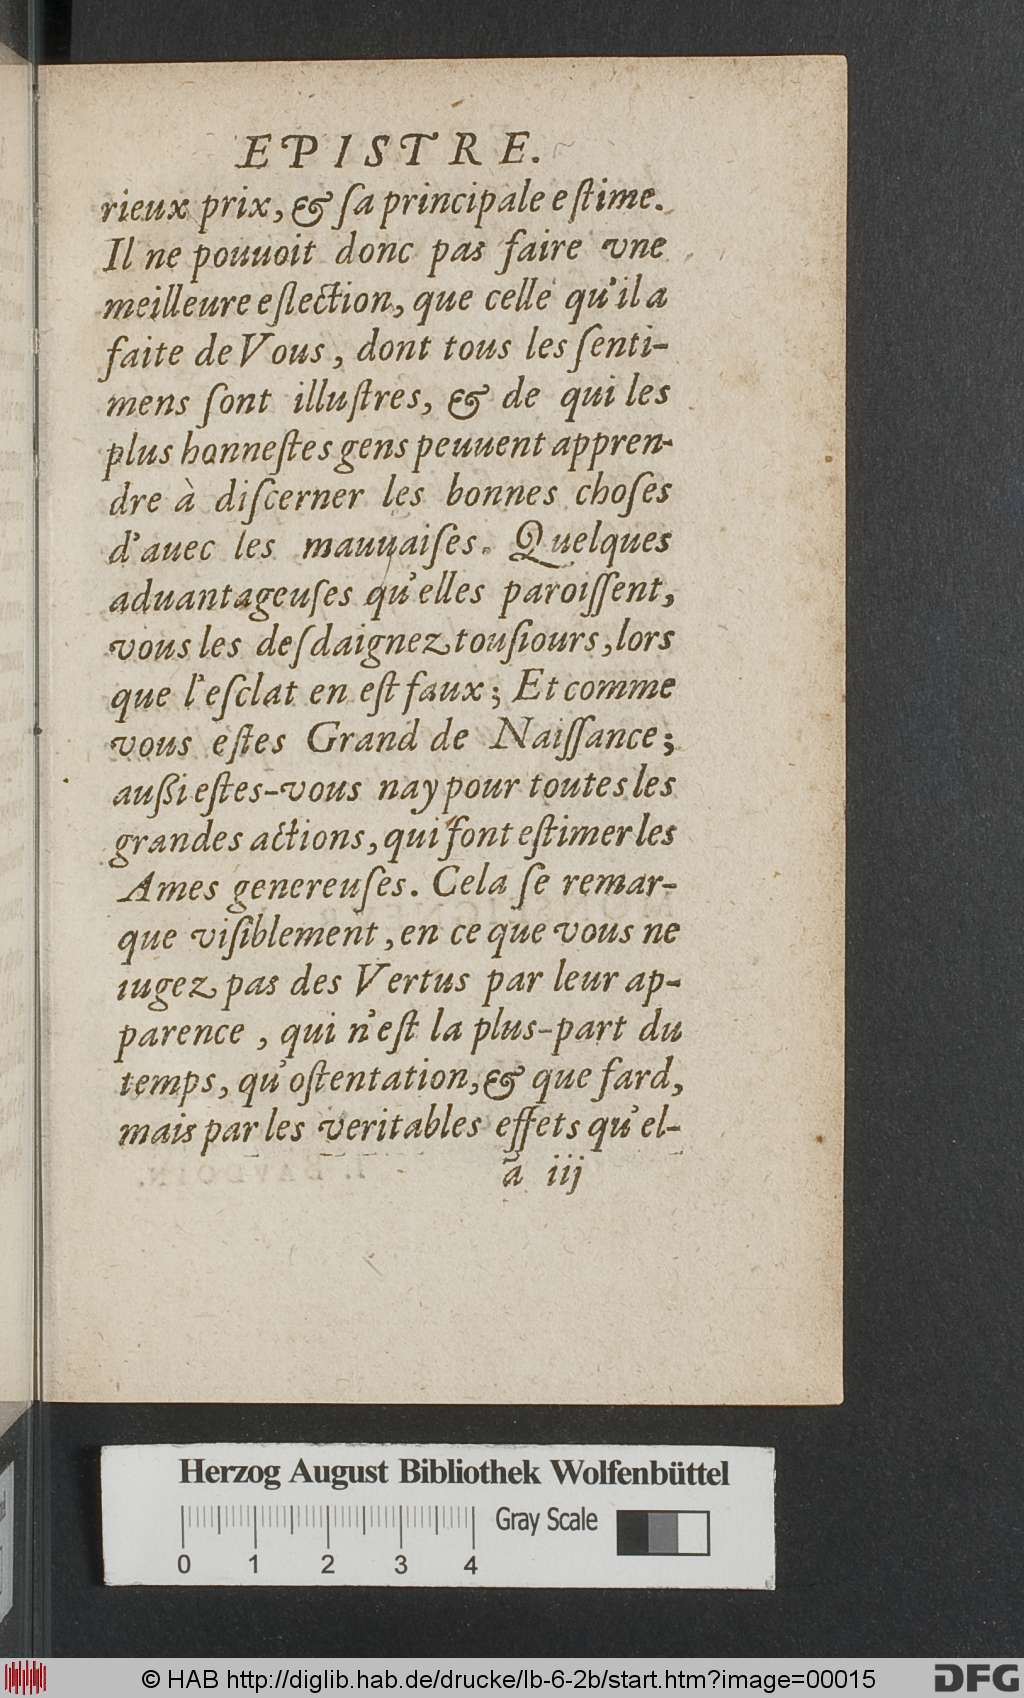 EPISTRE.
rieux prix, & ſa principale eſtime.
Il ne pouuoit donc pas faire vne
meilleure eſlection, que celle qu'il a
faite de Vous, dont tous les ſenti-
mens ſont illuſtres, & de qui les
plus honneſtes gens peuuent appren-
dre à diſcerner les bonnes choſes
d'auec les mauuaiſes. Quelques
aduantageuſes qu'elles paroiſſent,
vous les deſdaignez touſiours, lors
que l'eſclat en eſt faux; Et comme
vous eſtes Grand de Naiſſance;
auſſi eſtes-vous nay pour toutes les
grandes actions, qui font eſtimer les
Ames genereuſes. Cela ſe remar-
que viſiblement, en ce que vous ne
iugez pas des Vertus par leur ap-
parence, qui n'eſt la plus-part du
temps, qu'oſtentation, & que fard,
mais par les veritables effets qu'el-
ã iij
Herzog August Bibliothek Wolfenbüttel
Gray Scale
0 1 2 3 4
© HAB http://diglib.hab.de/drucke/lb-6-2b/start.htm?image=00015
DFG